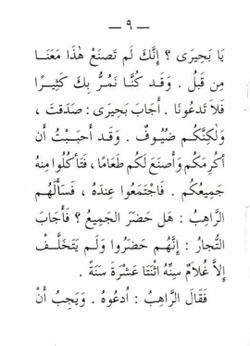 — ٩ —
يَا بَحِيرَى ؟ إِنَّكَ لَمْ تَصْنَعْ هٰذَا مَعَنَا
مِن قَبْلُ . وَقَد كُنَّا نَمُرُّ بِكَ كَثِيرًا
فَلَا تَدعُونَا . أَجَابَ بَحِيرَى : صَدَقتَ ،
وَلٰكِنَّكُم ضُيُوفٌ . وَقَد أَحبَبْتُ أَن
أُكرِمَكُم وَأَصنَعَ لَكُم طَعَامًا ، فَتَأكُلُوا مِنهُ
جَمِيعُكُم . فَاجتَمَعُوا عِندَهُ ، فَسَأَلَهُم
الرَّاهِبُ : هَل حَضَرَ الجَمِيعُ ؟ فَأَجَابَ
التُّجارُ : إِنَّهُم حَضَرُوا وَلَم يَتَخَلَّفْ
إِلاَّ غُلَامٌ سِنُّهُ اثنَتَا عَشْرَةَ سَنَةً .
فَقَالَ الرَّاهِبُ : ادعُوهُ . وَيَجِبُ أَنْ